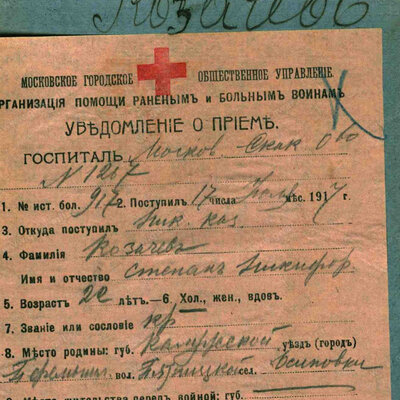 Козачов
МОСКОВСКОЕ ГОРОДСКОЕ ОБЩЕСТВЕННОЕ УПРАВЛЕНІЕ.
РГАНИЗАЦІЯ ПОМОЩИ РАНЕНЫМЪ и БОЛЬНЫМЪ ВОИНАМЪ
УВѢДОМЛЕНІЕ О ПРІЕМѢ.
ГОСПИТАЛЬ Москов. Скак О во
N 1267
1. № ист. бол. 917 2. Поступил 17 числа Іюля мѣс. 1917 г.
3. Откуда поступил Ник. каз
4. Фамилія Козачевъ
Имя и отчество Степанъ Никифор
5. Возраст 22 лѣт.—6. Хол., жен., вдов.
7. Званіе или сословіе кр
8. Мѣсто родины: губ. Калужской уѣзд (город)
вол. сел. Осиповки
Мѣсто жительства перед войной: губ.